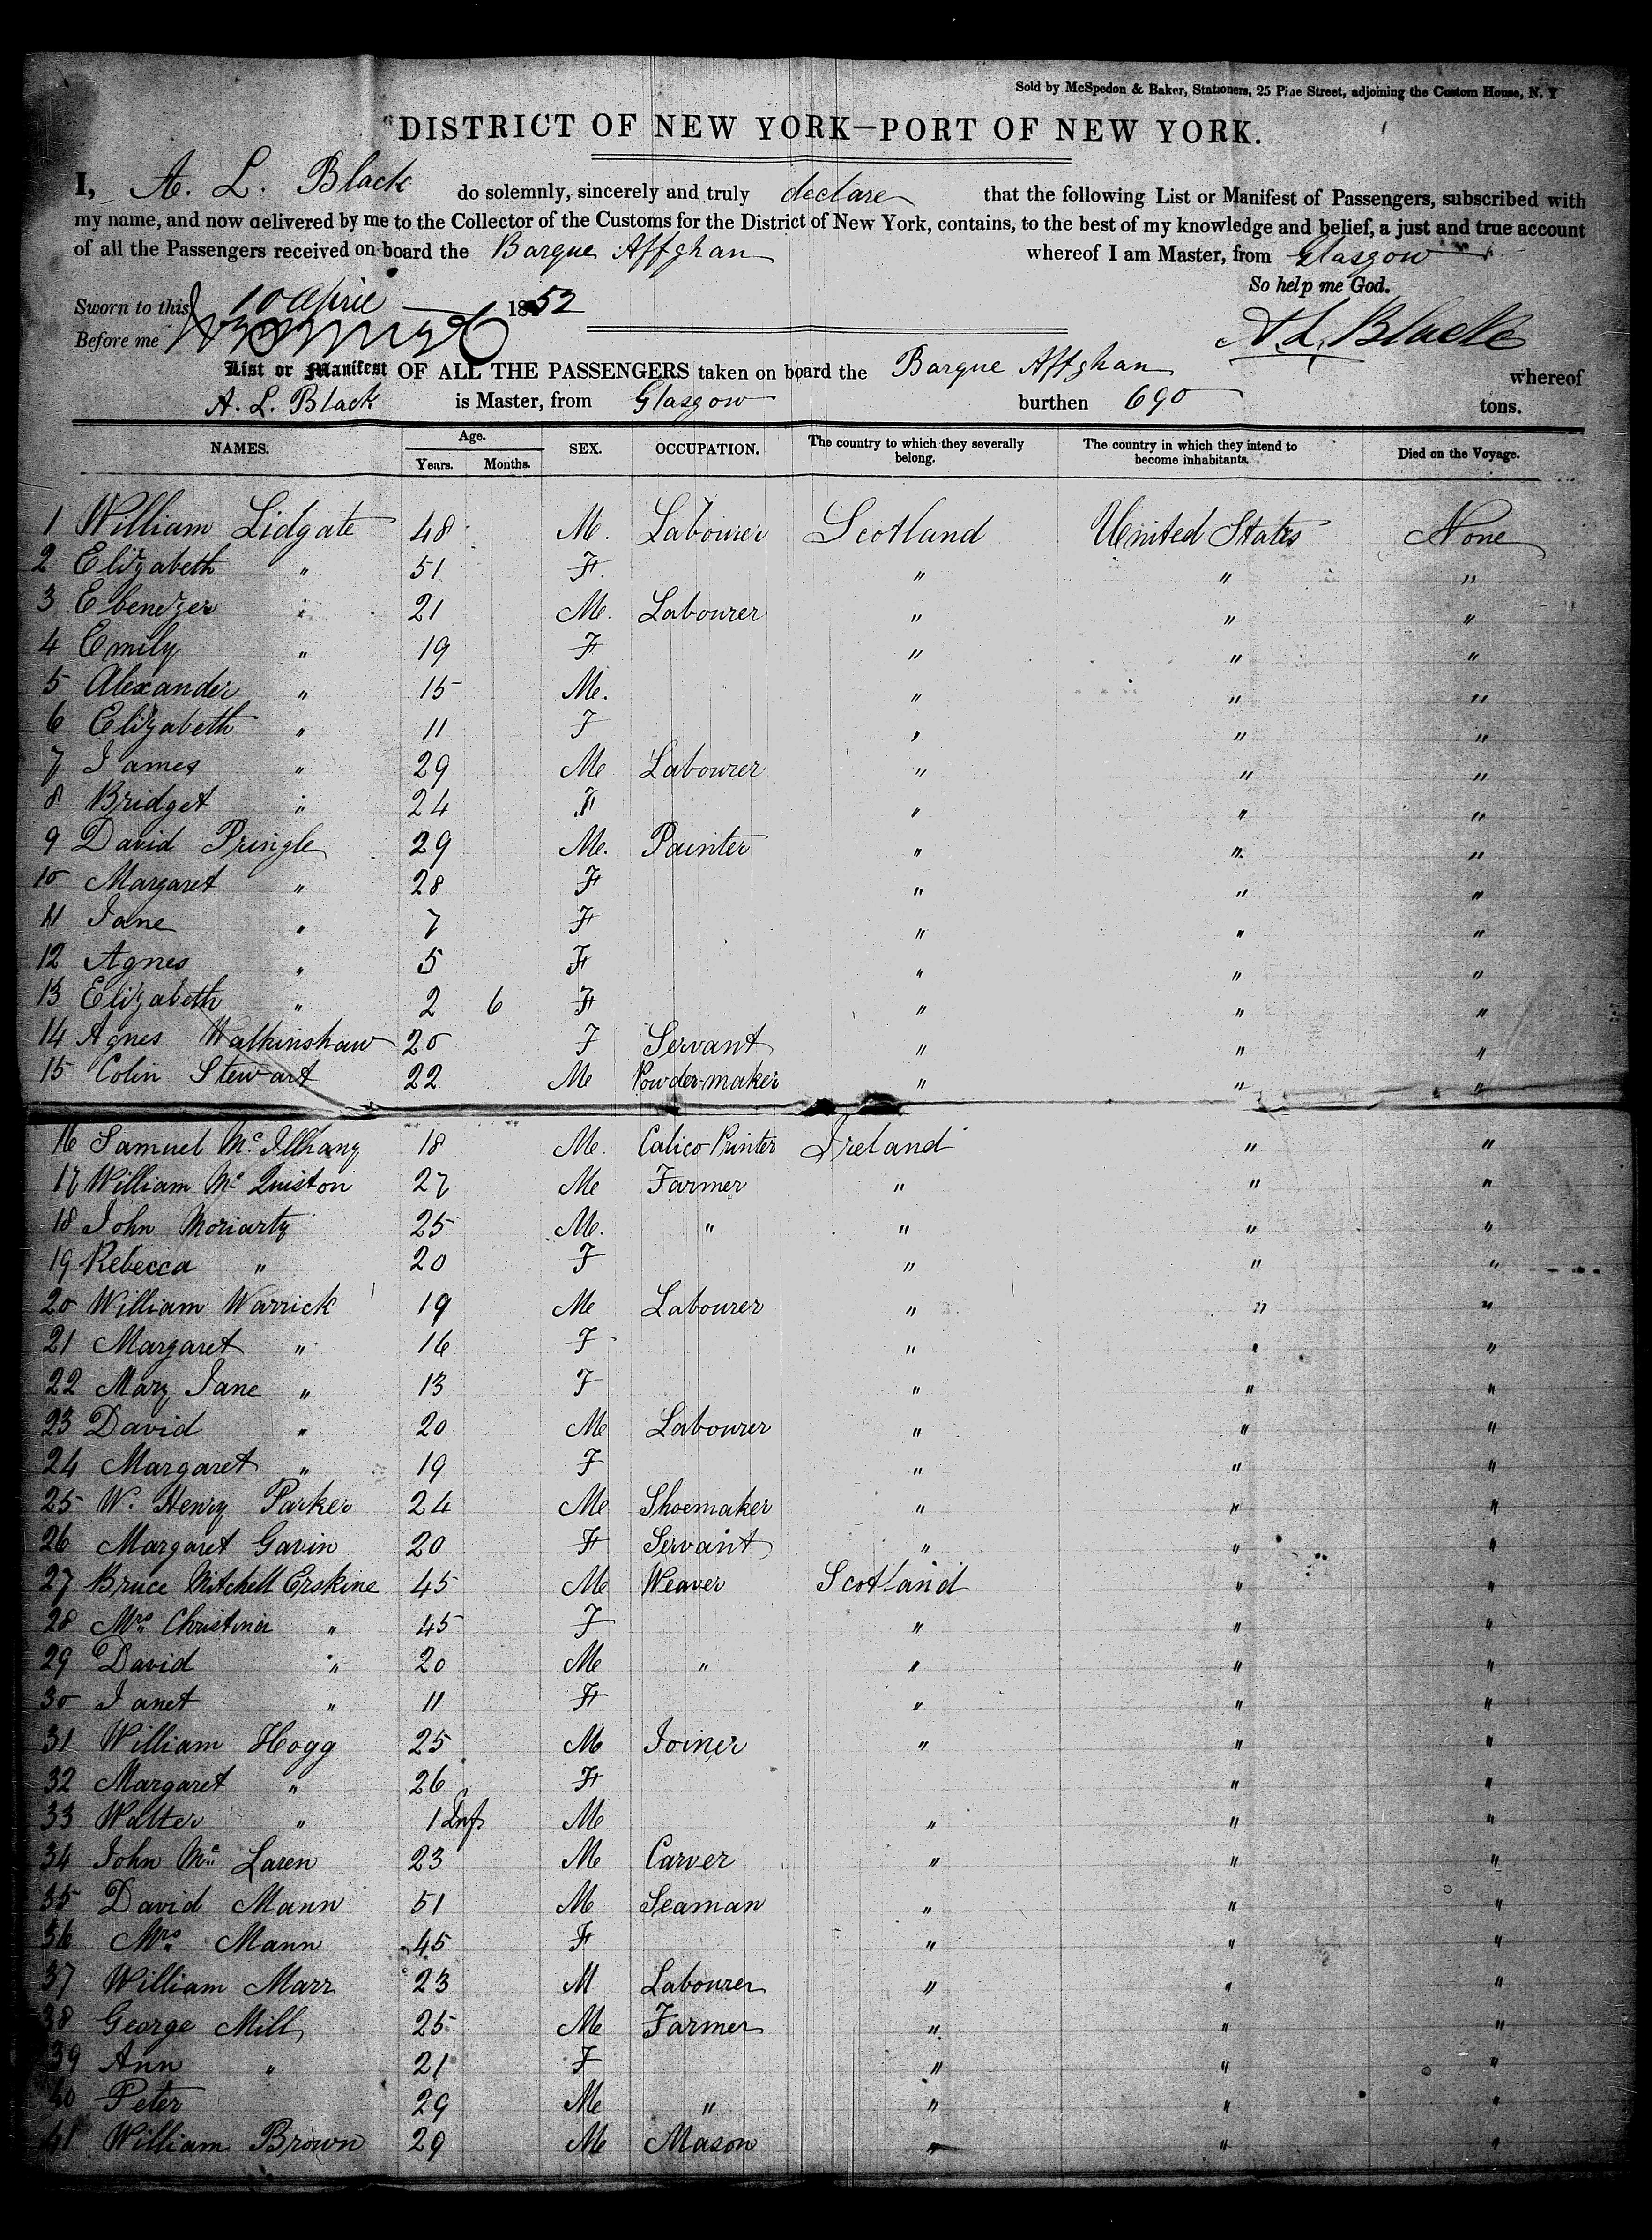 Sold by McSpedon & Baker, Stationers, 25 Pine Street, adjoining the Custom House, N. Y
DISTRICT OF NEW YORK—PORT OF NEW YORK.
I, A. L. Black do solemnly, sincerely and truly declare that the following List or Manifest of Passengers, subscribed with
my name, and now delivered by me to the Collector of the Customs for the District of New York, contains, to the best of my knowledge and belief, a just and true account
of all the Passengers received on board the Barque Affghan whereof I am Master, from Glasgow
So help me God.
Sworn to this 10 April 1852
Before me
A. L. Black
List or Manifest OF ALL THE PASSENGERS taken on board the Barque Affghan whereof
A. L. Black is Master, from Glasgow burthen 690 tons.
NAMES. Age. Years. Months. SEX. OCCUPATION. The country to which they severally belong. The country in which they intend to become inhabitants. Died on the Voyage.
1 William Lidgate 48 M. Labourer Scotland United States None
2 Elizabeth " 51 F. " " "
3 Ebenezer " 21 M. Labourer " " "
4 Emily " 19 F " " "
5 Alexander " 15 M. " " "
6 Elizabeth " 11 F " " "
7 James " 29 M Labourer " " "
8 Bridget " 24 F " " "
9 David Pringle 29 M. Painter " " "
10 Margaret " 28 F " " "
11 Jane " 7 F " " "
12 Agnes " 5 F " " "
13 Elizabeth " 2 6 F " " "
14 Agnes Walkinshaw 20 F Servant " " "
15 Colin Stewart 22 M Powder-maker " " "
16 Samuel 18 M. Calico Printer Ireland " "
17 William Mc Quiston 27 M Farmer " " "
18 John Moriarty 25 M. " " " "
19 Rebecca " 20 F " " "
20 William Warrick 19 M Labourer " " "
21 Margaret " 16 F " " "
22 Mary Jane " 13 F " " "
23 David " 20 M Labourer " " "
24 Margaret " 19 F " " "
25 W. Henry Parker 24 M Shoemaker " " "
26 Margaret Gavin 20 F Servant " " "
27 Bruce Mitchell Erskine 45 M Weaver Scotland " "
28 Mrs. Christina " 45 F " " "
29 David " 20 M " " " "
30 Janet " 11 F " " "
31 William Hogg 25 M Joiner " " "
32 Margaret " 26 F " "
33 Walter " 1 Inf. M " " "
34 John Mc Laren 23 M Carver " " "
35 David Mann 51 M Seaman " " "
36 Mrs. Mann 45 F " " "
37 William Marr 23 M Labourer " " "
38 George Mill 25 M Farmer " " "
39 Ann " 21 F " " "
40 Peter 29 M " " " "
41 William Brown 29 M Mason " " "